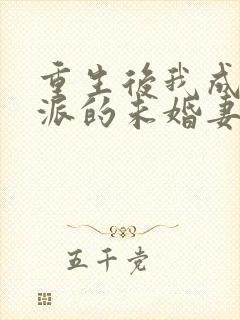 重生後我成
派的未婚妻
五千党